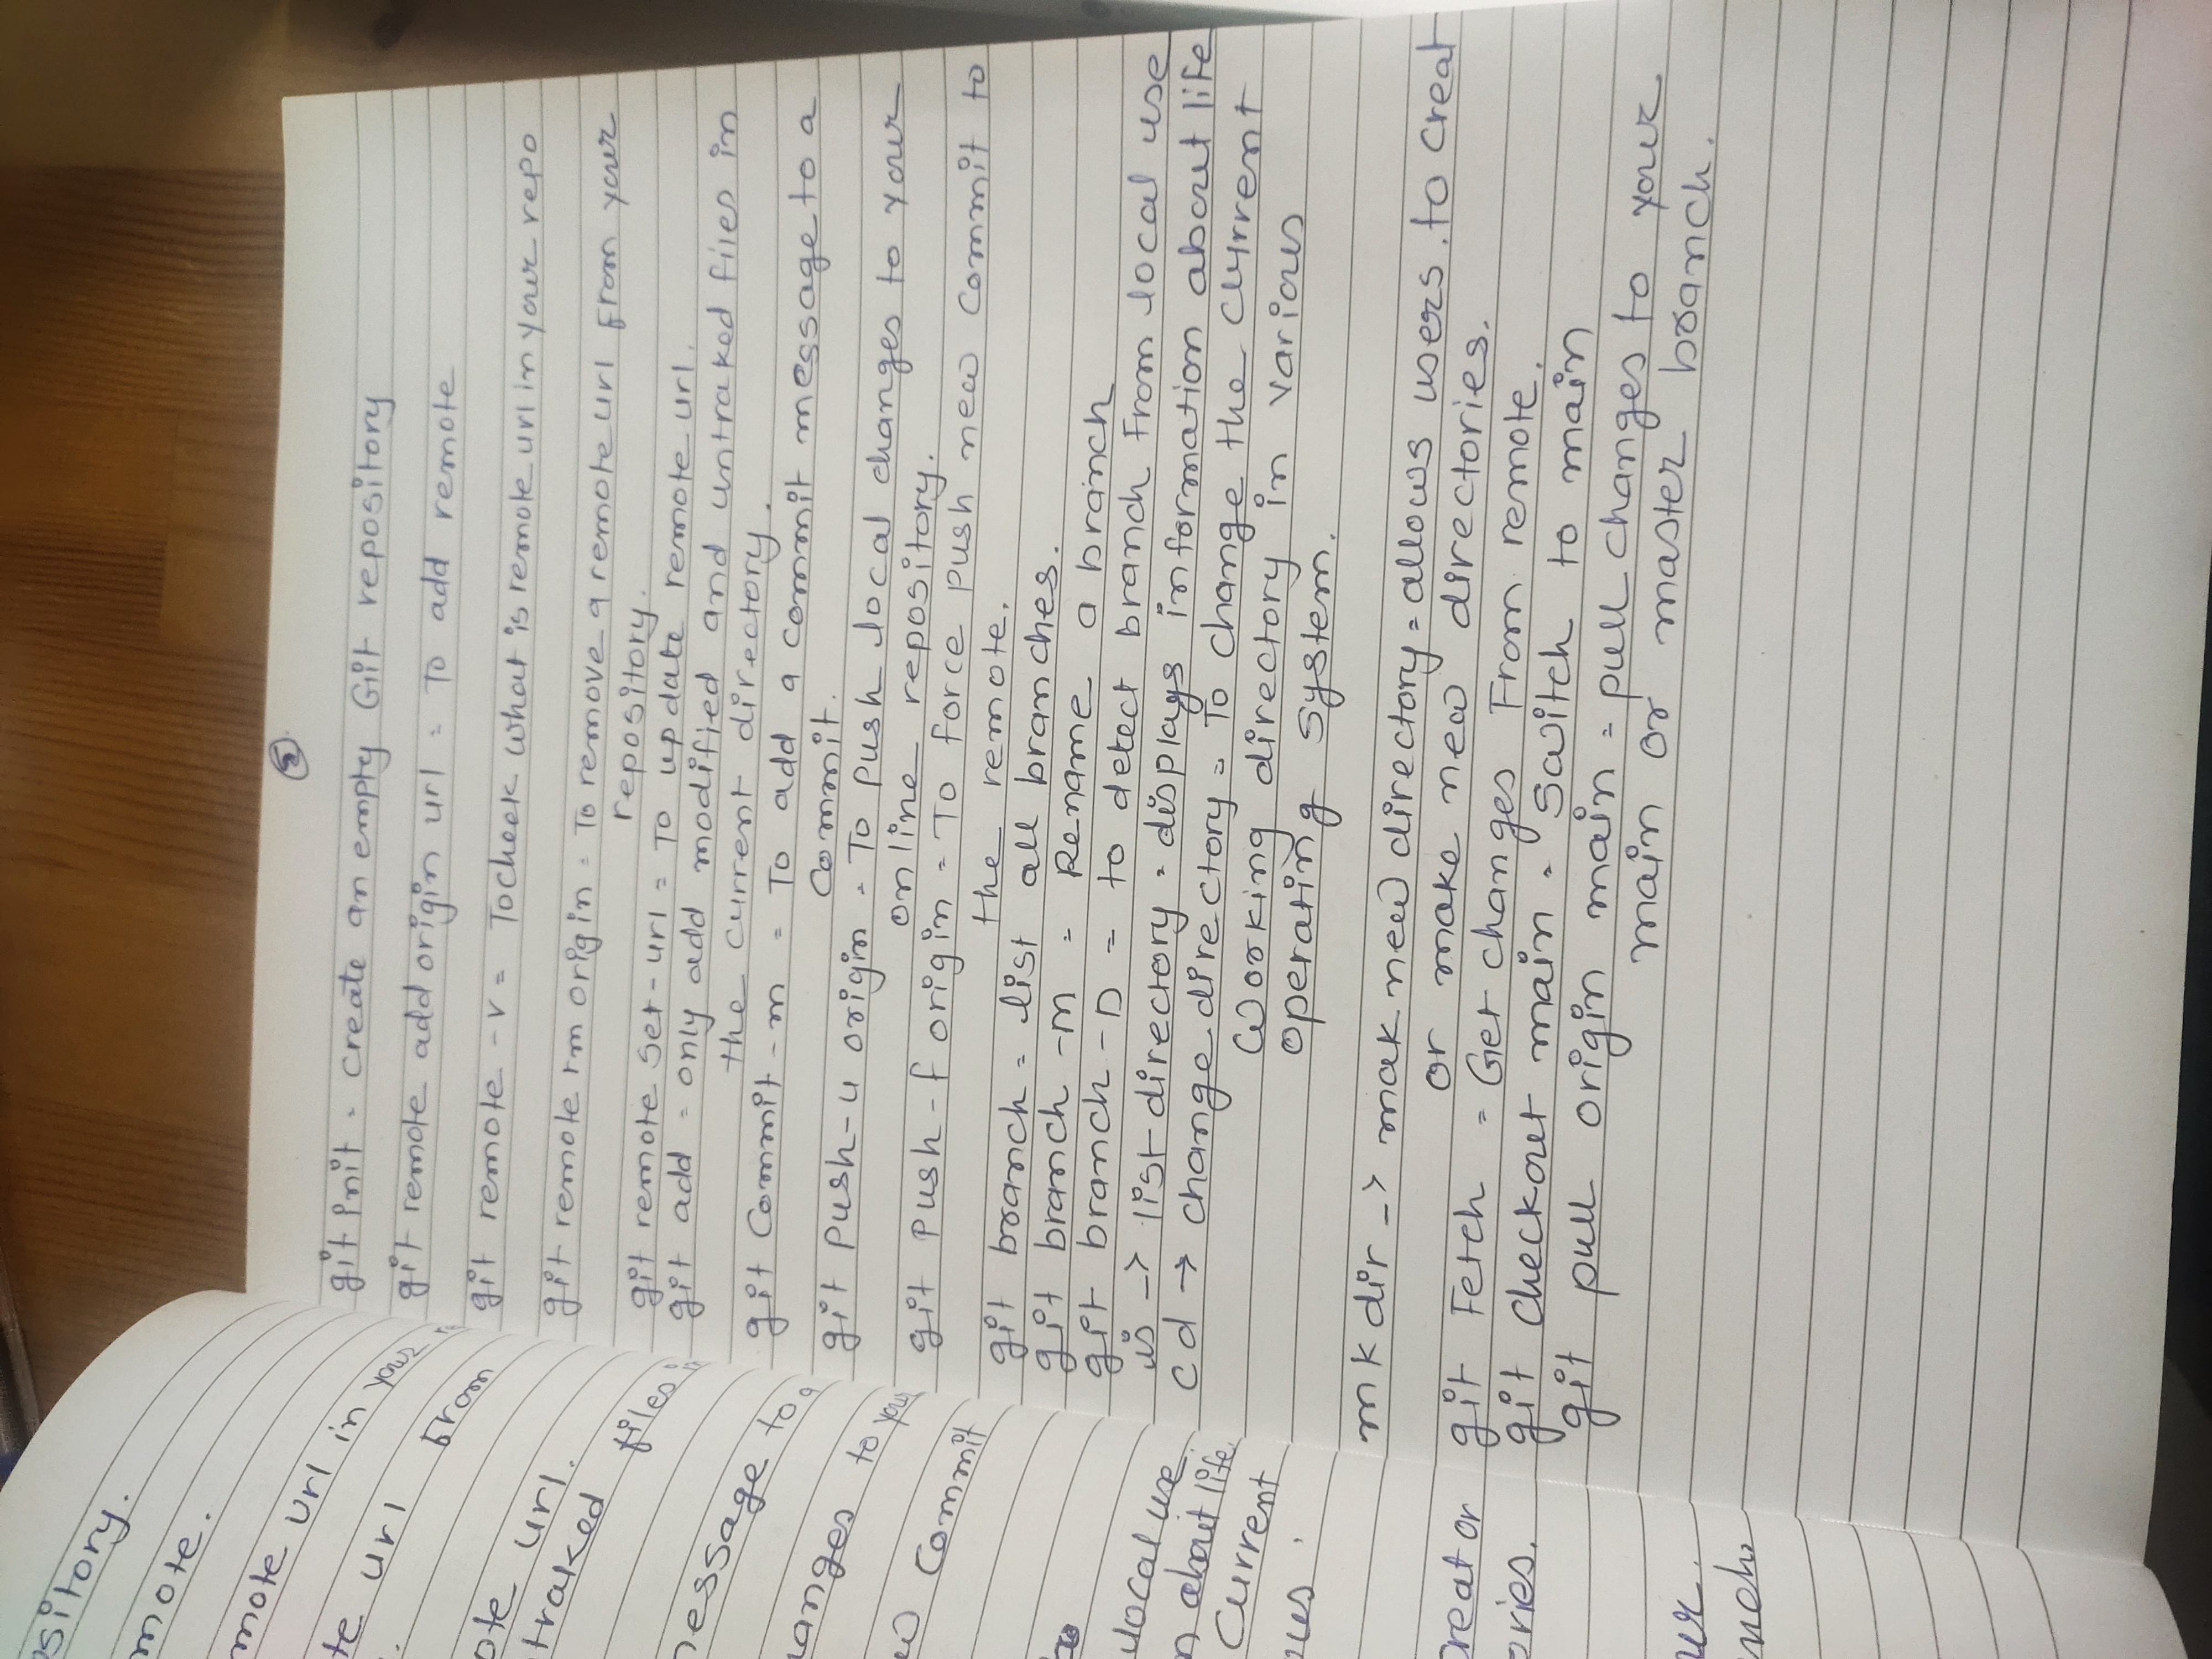 ository.
mote.
mote url in your
te url from
ote url.
traked files in
message to a
anges to your
ew Commit
local use
n about life.
Current
ous.
creat or
ories.
ur.
nch.
5
git init = create an empty Git repository
git remote add origin url = To add remote
git remote -v = To check what is remote url in your repo
git remote rm origin = To remove a remote url from your
repository.
git remote set-url = To update remote url.
git add = only add modified and untraked files in
the current directory.
git Commit -m = To add a commit message to a
Commit.
git push -u origin = To push local changes to your
online repository.
git push -f origin = To force push new commit to
the remote.
git branch = list all branches.
git branch -m = Rename a branch
git branch -D = to detect branch from local use
is -> list directory = displays information about life
cd -> change directory = To change the current
working directory in various
operating system.
mkdir -> mak new directory = allows users. to creat
or make new directories.
git Fetch = Get changes From remote.
git checkout main = Switch to main
git pull origin main = pull changes to your
main or master branch.